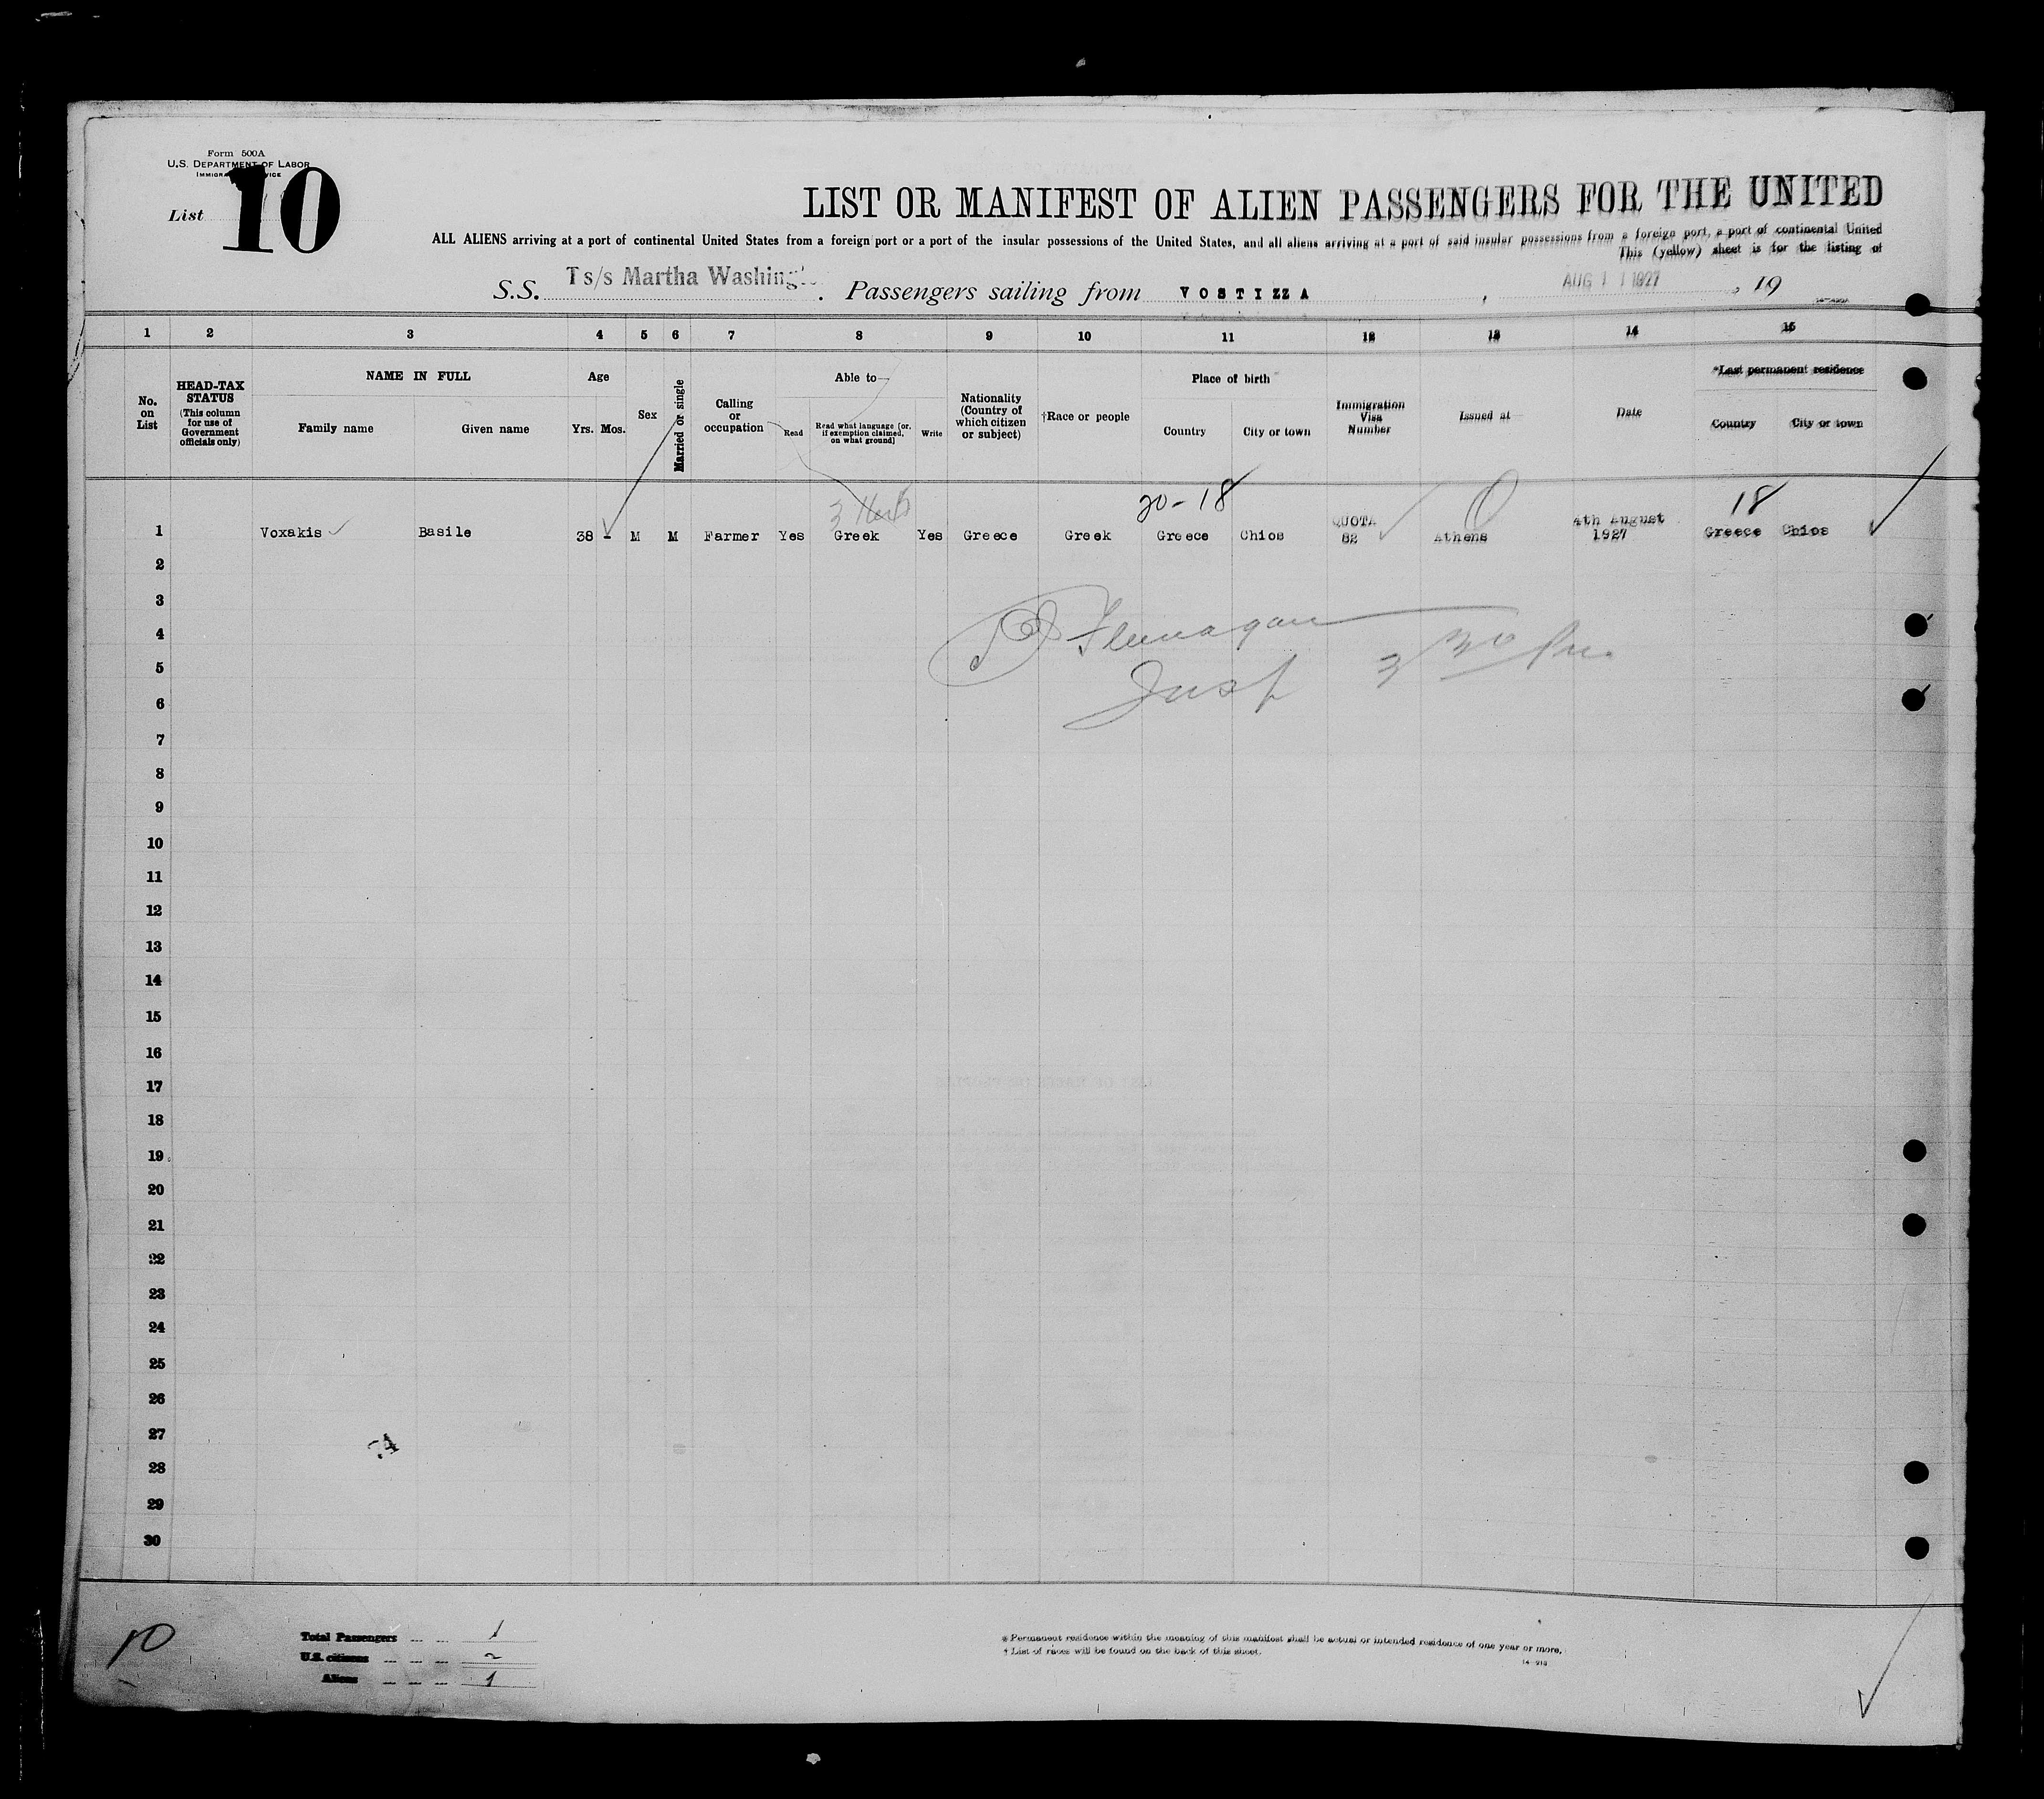 Form 500A
U.S. DEPARTMENT OF LABOR
List 10
LIST OR MANIFEST OF ALIEN PASSENGERS FOR THE UNITED
ALL ALIENS arriving at a port of continental United States from a foreign port or a port of the insular possessions of the United States, and all aliens arriving at a port of said insular possessions from a foreign port, a port of continental United
This (yellow) sheet is for the listing of
S.S. Ts/s Martha Washing . Passengers sailing from VOSTIZZA , AUG 11 1927 , 19
1 2 3 4 5 6 7 8 9 10 11 12 13 14 15
No. on List
HEAD-TAX STATUS (This column for use of Government officials only)
NAME IN FULL
Family name Given name
Age
Yrs. Mos.
Sex
Married or single
Calling or occupation
Able to—
Read
Read what language [or, if exemption claimed, on what ground]
Write
Nationality (Country of which citizen or subject)
†Race or people
Place of birth
Country City or town
Immigration Visa Number
Issued at
Date
*Last permanent residence
Country City or town
20-18 18
1 Voxakis Basile 38 - M M Farmer Yes Greek Yes Greece Greek Greece Chios QUOTA 82 Athens 4th August 1927 Greece Chios
2
3
4
Flannagan
5
3 30 Pm.
6
Insp
7
8
9
10
11
12
13
14
15
16
17
18
19
20
21
22
23
24
25
26
27
28
29
30
10
Total Passengers 1
U.S. citizens
Aliens 1
* Permanent residence within the meaning of this manifest shall be actual or intended residence of one year or more.
† List of races will be found on the back of this sheet.